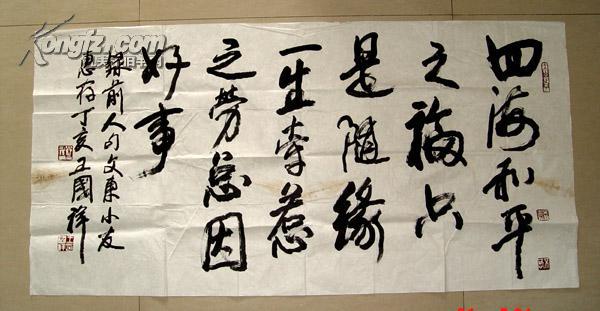 四海和平
之福只
是随缘
一生牵惹
之劳总因
好事
録前人句文東小友
惠存丁亥王國祥
Kongfz.com